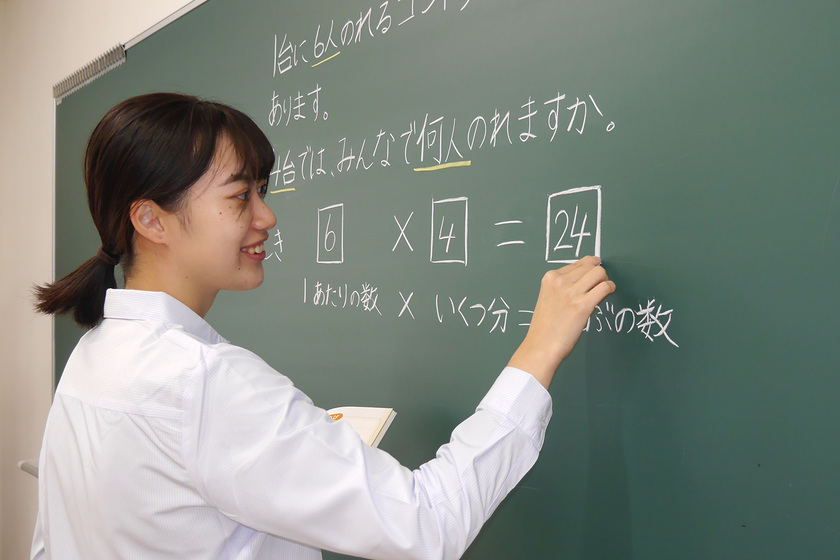 1台に6人のれるゴンドラ
あります。
4台では、みんなで何人のれますか。
き 6 × 4 = 24
1あたりの数 × いくつ分 = ぶの数